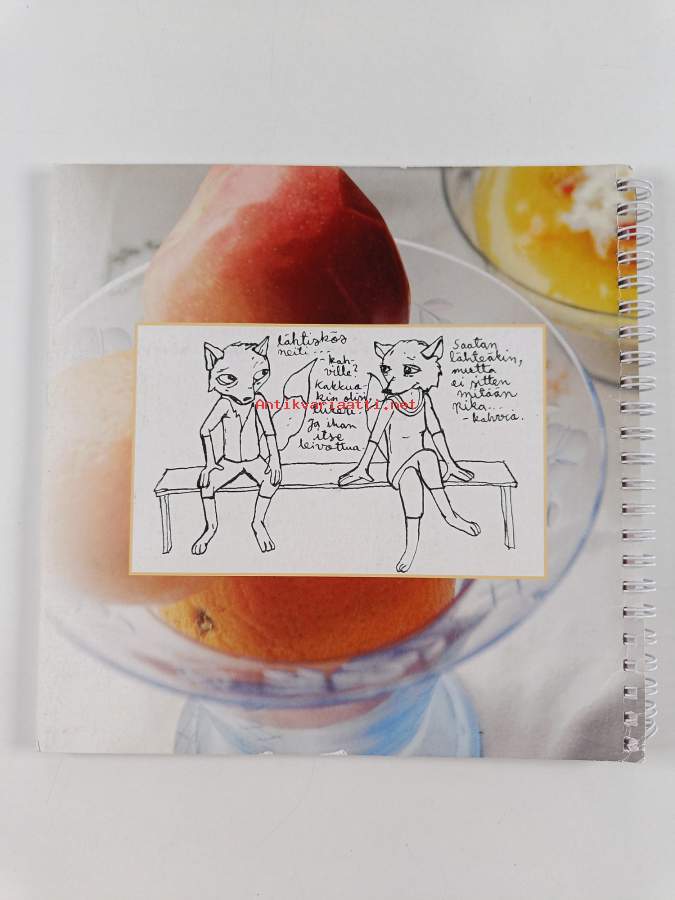 Lähtiskös
neiti...
- kah-
ville?
Kakkua-
kin olisi
Ja ihan
itse
leivottua.
Saatan
lähteäkin,
mutta
ei sitten
mitään
pika...
- kahvia.
Antikvariaatti.net